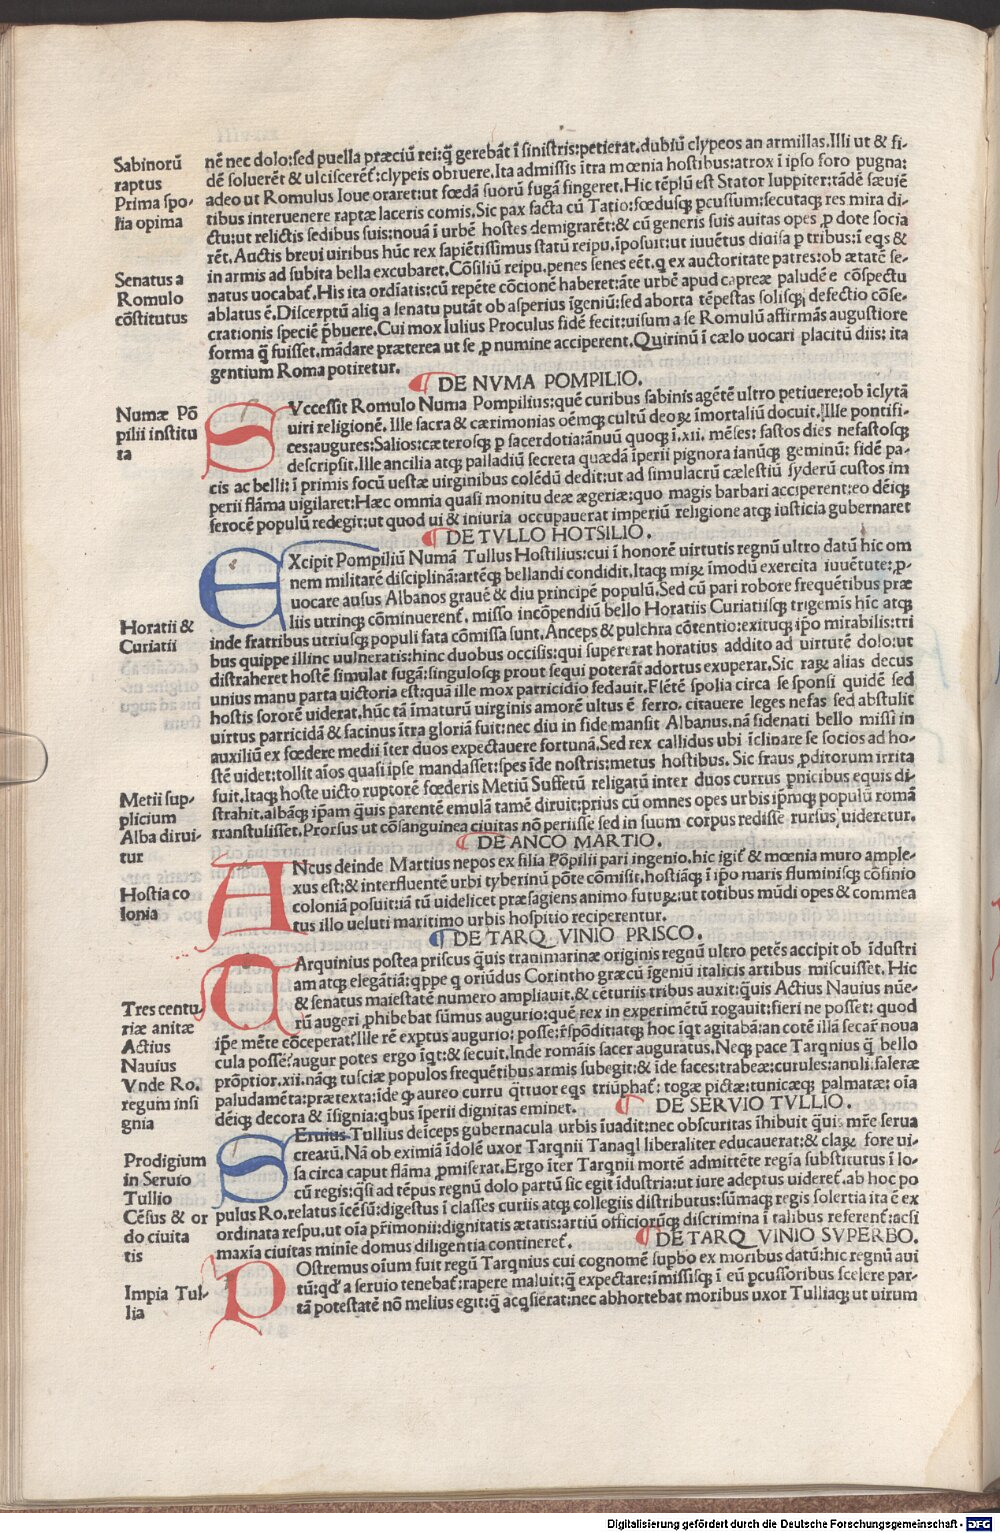 Sabinorū
raptus
Prima spo-
lia opima
nē nec dolo:sed puella præciū rei:q̄ gerebāt ī sinistris:petierat.dubiū clypeos an armillas.Illi ut & fi-
dē soluerēt & ulcisceren̄t:clypeis obruere.Ita admissis ītra mœnia hostibus:atrox ī ipso foro pugna:
adeo ut Romulus Ioue oraret:ut fœdā suorū fugā singeret.Hic tēplū est Stator Iuppiter:tādē sæuiē
tibus interuenere raptæ laceris comis.Sic pax facta cū Tatio:fœdusq; ꝑcussum:secutaq; res mira di-
ctu:ut relictis sedibus suis:nouā ī urbē hostes demigrarēt:& cū generis suis auitas opes ꝓ dote socia
rēt.Auctis breui uiribus hūc rex sapiētissimus statū reipu.īposuit:ut iuuētus diuisa ꝑ tribus:ī eqs &
Senatus a
Romulo
cōstitutus
in armis ad subita bella excubaret.Cōsiliū reipu.penes senes eēt.q ex auctoritate patres:ob ætatē se-
natus uocabat̄.His ita ordīatis:cū repēte cōcionē haberet:āte urbē apud capreæ paludē e cōspectu
ablatus ē.Discerptū aliq a senatu putāt ob asperius īgeniū:sed aborta tēpestas solisq; defectio cōse-
crationis speciē p̄buere.Cui mox Iulius Proculus fidē fecit:uisum a se Romulū affirmās augustiore
forma q̄ fuisset.mādare præterea ut se ꝓ numine acciperent.Quirinū ī cælo uocari placitū diis: ita
gentium Roma potiretur.
¶ DE NVMA POMPILIO.
Numæ Pō
pilii institu
ta
SVccessit Romulo Numa Pompilius:quē curibus sabinis agētē ultro petiuere:ob īclytā
uiri religionē.Ille sacra & cærimonias oēmq; cultū deoꝝ īmortaliū docuit.Ille pontifi-
ces:augures:Salios:cæterosq; ꝑ sacerdotia:ānuū quoq; ī.xii. mēses: fastos dies nefastosq;
descripsit.Ille ancilia atq; palladiū secreta quædā īperii pignora ianūq; geminū: fidē pa-
cis ac belli:ī primis focū uestæ uirginibus colēdū dedit:ut ad simulacrū cælestiū syderū custos im
perii flāma uigilaret:Hæc omnia quasi monitu deæ ægeriæ:quo magis barbari acciperent:eo dēiq;
ferocē populū redegit:ut quod ui & iniuria occupauerat imperiū religione atq; iusticia gubernaret
¶ DE TVLLO HOTSILIO.
EXcipit Pompiliū Numā Tullus Hostilius:cui ī honorē uirtutis regnū ultro datū hic om
nem militarē disciplinā:artēq; bellandi condidit.Itaq; miꝝ īmodū exercita iuuētute:ꝓ-
uocare ausus Albanos grauē & diu principē populū.Sed cū pari robore frequētibus præ
liis utrinq; cōminuerent̄. misso incōpendiū bello Horatiis Curiatiisq; trigemis hīc atq;
Horatii &
Curiatii
inde fratribus utriusq; populi fata cōmissa sunt.Anceps & pulchra cōtentio:exituq; ip̄o mirabilis:tri
bus quippe illinc uulneratis:hinc duobus occisis:qui supererat horatius addito ad uirtutē dolo:ut
distraheret hostē simulat fugā:singulosq; prout sequi poterāt adortus exuperat.Sic raꝝ alias decus
unius manu parta uictoria est:quā ille mox patricidio fedauit.Flētē spolia circa se sponsi quidē sed
hostis sororē uiderat.hūc tā īmaturū uirginis amorē ultus ē ferro. citauere leges nefas sed abstulit
uirtus parricidā & facinus ītra gloriā fuit:nec diu in fide mansit Albanus.nā fidenati bello missi in
auxiliū ex fœdere medii īter duos expectauere fortunā.Sed rex callidus ubi īclinare se socios ad ho-
stē uidet:tollit aīos quasi ipse mandasset:spes īde nostris:metus hostibus. Sic fraus ꝓditorum irrita
Metii sup-
plicium
Alba dirui-
tur
fuit.Itaq; hoste uicto ruptorē fœderis Metiū Suffetū religatū inter duos currus ꝑnicibus equis di-
strahit.albāq; ip̄am q̄uis parentē emulā tamē diruit:prius cū omnes opes urbis ip̄mq; populū romā
transtulisset.Prorsus ut cōsanguinea ciuitas nō periisse sed in suum corpus redisse rursus uideretur.
¶ DE ANCO MARTIO.
ANcus deinde Martius nepos ex filia Pōpilii pari ingenio.hic igit̄ & mœnia muro ample-
xus est:& interfluentē urbi tyberinū pōte cōmisit.hostiāq; ī ip̄o maris fluminisq; cōfinio
Hostia co
lonia
coloniā posuit:iā tū uidelicet præsagiens animo futuꝝ:ut totibus mūdi opes & commea
tus illo ueluti maritimo urbis hospitio reciperentur.
¶ DE TARQ VINIO PRISCO.
TArquinius postea priscus q̄uis tranimarinæ originis regnū ultro petēs accipit ob īdustri
am atq; elegātiā:qppe q oriūdus Corintho græcū īgeniū italicis artibus miscuisset. Hic
& senatus maiestatē numero ampliauit.& cēturiis tribus auxit:q̄uis Actius Nauius nūe-
Tres centu-
riæ anitæ
Actius
Nauius
Vnde Ro.
regum insi
gnia
rū augeri ꝓhibebat sūmus augurio:quē rex in experimētū rogauit:fieri ne posset: quod
ip̄e mēte cōceperat?Ille rē exptus augurio: posse:r̄spōdit:atq; hoc īqt agitabā:an cotē illā secar̄ noua
cula possē?augur potes ergo īqt:& secuit.Inde romāis sacer auguratus.Neq; pace Tarqnius q̄ bello
prōptior.xii.nāq; tusciæ populos frequētibus armis subegit:& īde faces:trabeæ:curules:anuli.faleræ
paludamēta:prætexta:īde ꝙ aureo curru q̄ttuor eqs triūphat̄: togæ pictæ:tunicæq; palmatæ: oīa
dēiq; decora & īsignia:qbus īperii dignitas eminet.
¶ DE SERVIO TVLLIO.
SEruius Tullius deīceps gubernacula urbis īuadit:nec obscuritas īhibuit q̄uis mr̄e serua
creatū.Nā ob eximiā īdolē uxor Tarqnii Tanaql liberaliter educauerat:& claꝝ fore ui-
Prodigium
in Seruio
Tullio
Cēsus & or
do ciuita
tis
sa circa caput flāma ꝓmiserat.Ergo īter Tarqnii mortē admittēte regīa substitutus ī lo-
cū regis:q̄si ad tēpus regnū dolo partū sic egit īdustria:ut iure adeptus uideret̄.ab hoc po
pulus Ro.relatus īcēsū:digestus ī classes curiis atq; collegiis distributus:sūmaq; regis solertia ita ē ex
ordinata respu.ut oīa p̄rimonii:dignitatis ætatis:artiū officiorūq; discrimina ī talibus referent̄:acsi
maxīa ciuitas minīe domus diligentia contineret̄.
¶ DE TARQ VINIO SVPERBO.
POstremus oīum fuit regū Tarqnius cui cognomē supbo ex moribus datū:hic regnū aui
Impia Tul-
lia
tū:qd' a seruio tenebat̄:rapere maluit:q̄ expectare:īmissisq; ī eū ꝑcussoribus scelere par-
tā potestatē nō melius egit:q̄ acqsierat:nec abhortebat moribus uxor Tulliaq; ut uirum
Digitalisierung gefördert durch die Deutsche Forschungsgemeinschaft - DFG